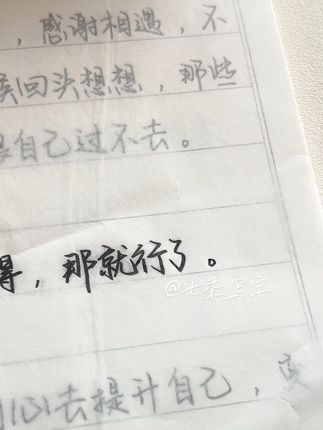 ，感谢相遇，不
回头想想，那些
自己过不去。
得，那就行了。
@七柒写字
心去提升自己，